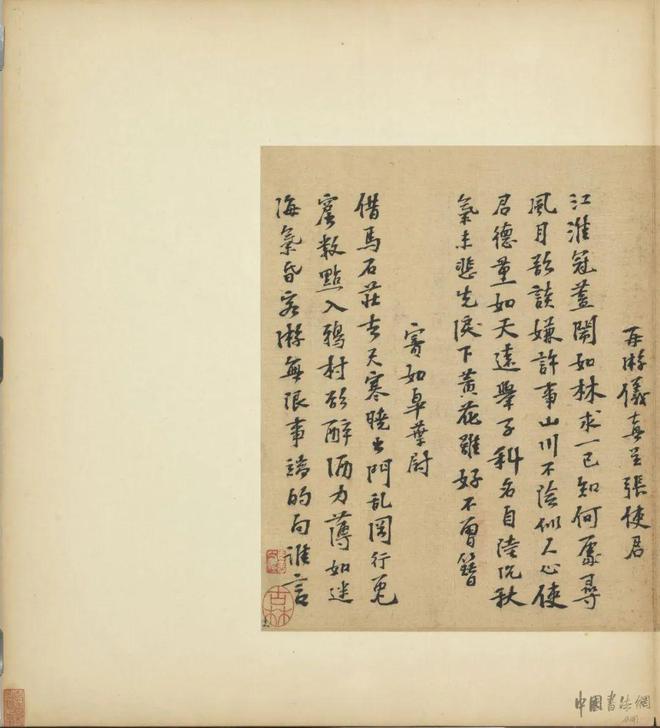 再游儀真呈張使君
江淮冠蓋鬧如林求一己知何處尋
風月欲談嫌許事山川不險似人心使
君德量如天遠舉子科名自陸沉秋
氣未悲先淚下黃花雖好不曾簪
寄如皋葉尉
借馬石莊去天寒曉出門乱岡行兔
窟數點入鴉村欲醉酒力薄如迷
海氣昏客游無限事端的向誰言
中國書法網